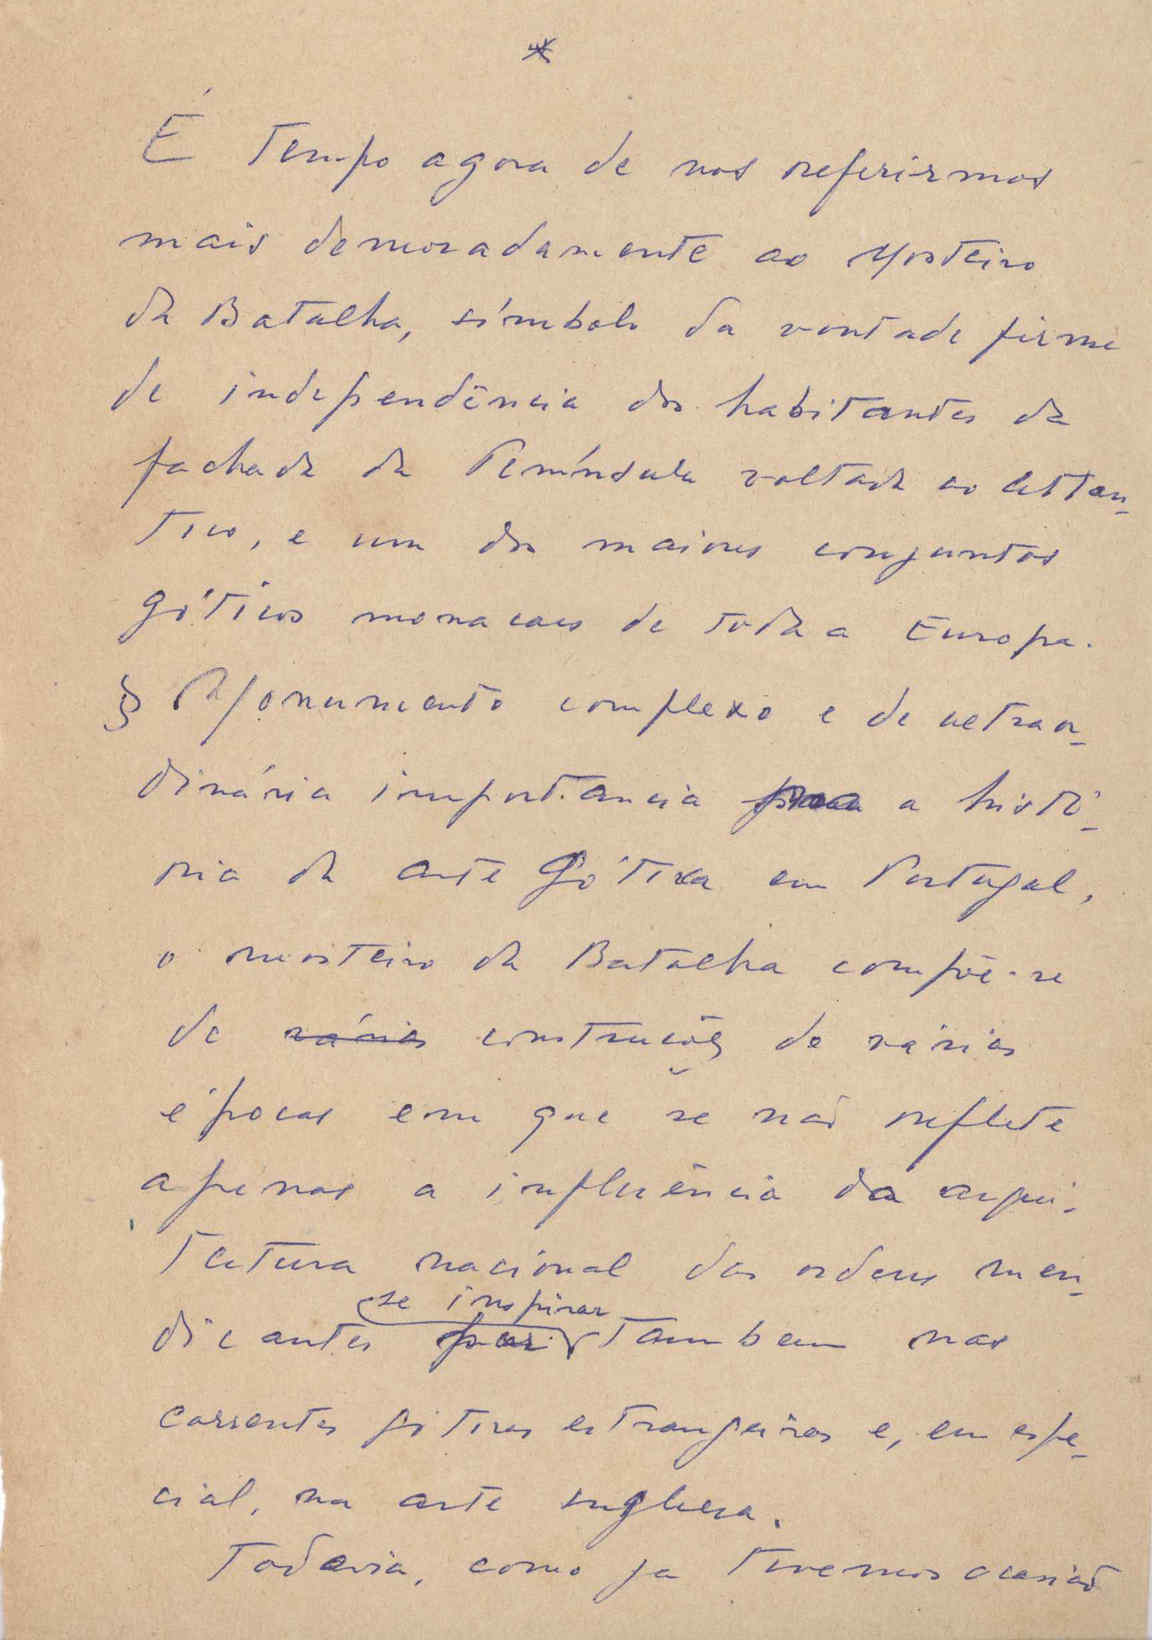 *
É tempo agora de nos referirmos
mais demoradamente ao Mosteiro
da Batalha, símbolo da vontade firme
de independência dos habitantes da
fachada da Península voltada ao Atlan-
tico, e um dos maiores conjuntos
góticos monacais de toda a Europa.
§ Monumento complexo e de extraor-
dinária importancia a histó-
ria da arte Gótica em Portugal,
o mosteiro da Batalha compõe-se
de várias construções de várias
épocas em que se não reflete
apenas a influência da arqui-
tectura nacional das ordens men-
se inspirar
dicantes tambem nas
correntes góticas estrangeiras e, em espe-
cial, na arte inglesa.
Todavia, como ja tivemos ocasião